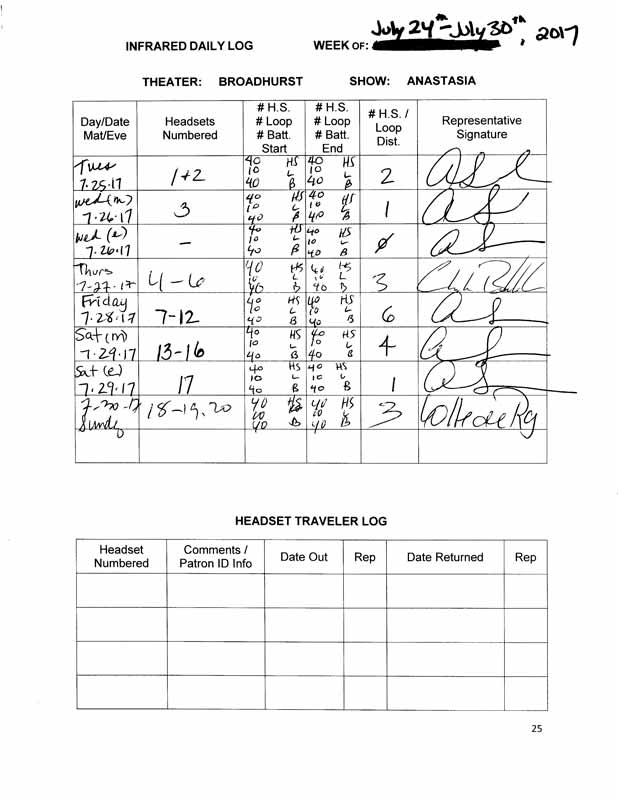 July 24th - July 30th, 2017
INFRARED DAILY LOG WEEK OF:
THEATER: BROADHURST SHOW: ANASTASIA
Day/Date Mat/Eve Headsets Numbered # H.S. # Loop # Batt. Start # H.S. # Loop # Batt. End # H.S. / Loop Dist. Representative Signature
Tues 7.25.17 1+2 40 HS 10 L 40 B 40 HS 10 L 40 B 2
Wed (m) 7.26.17 3 40 HS 10 L 40 B 40 HS 10 L 40 B 1
Wed (e) 7.26.17 – 40 HS 10 L 40 B 40 HS 10 L 40 B ø
Thurs 7-27-17 4-6 40 HS 10 L 40 B 40 HS 10 L 40 B 3
Friday 7.28.17 7-12 40 HS 10 L 40 B 40 HS 10 L 40 B 6
Sat (m) 7.29.17 13-16 40 HS 10 L 40 B 40 HS 10 L 40 B 4
Sat (e) 7.29.17 17 40 HS 10 L 40 B 40 HS 10 L 40 B 1
7-30-17 Sunday 18-19, 20 40 HS 40 B 40 HS 10 L 40 B 3
HEADSET TRAVELER LOG
Headset Numbered Comments / Patron ID Info Date Out Rep Date Returned Rep
25